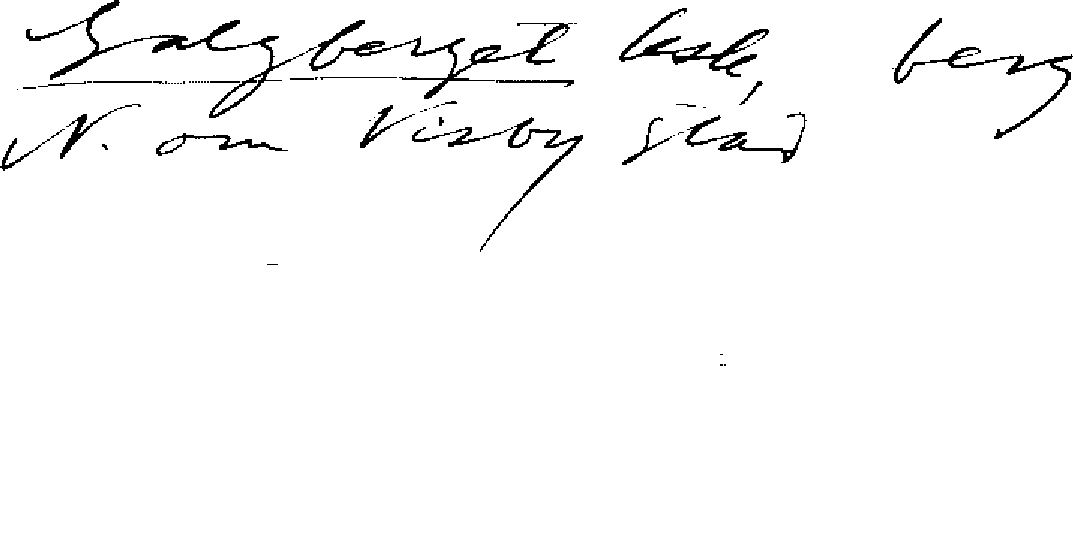 Galgberget bsk, berg
N. om Visby stad